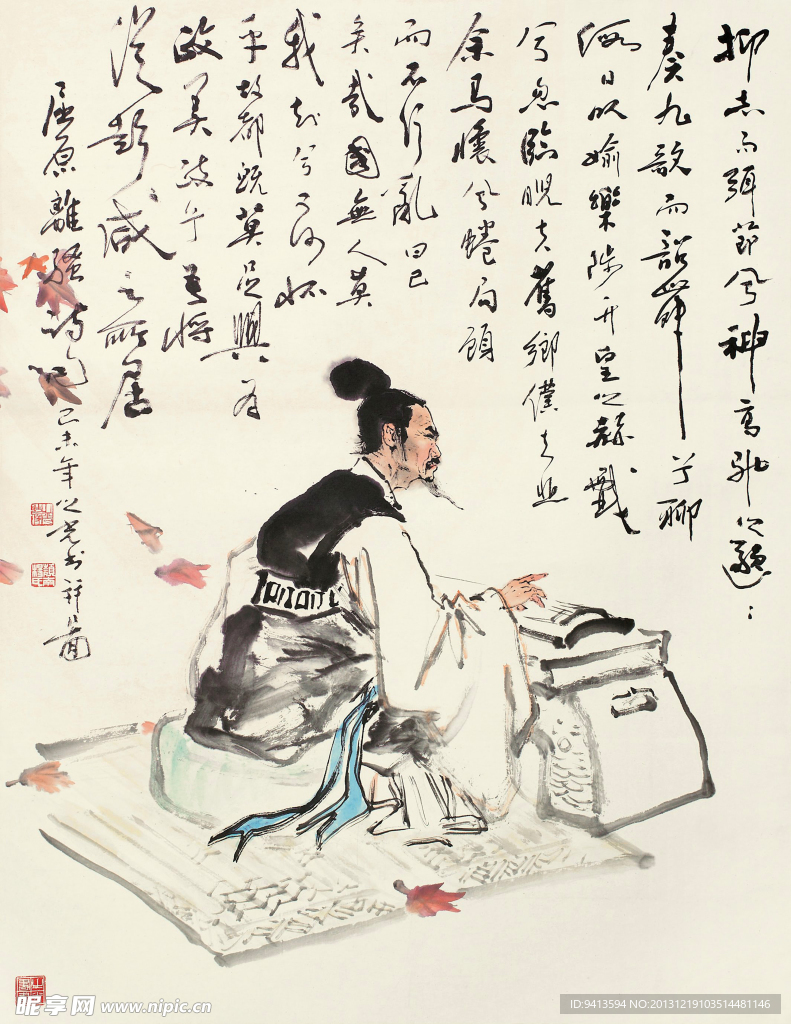 抑志而弭節兮神高馳之邈邈
奏九歌而韶舞兮聊
假日以媮樂陟升皇之赫戲
兮忽臨睨夫舊鄉僕夫悲
余馬懷兮蜷局顧
而不行亂曰已
矣哉國無人莫
我知兮又何怀
乎故都既莫足與為
政美兮吾將
從彭咸之所居
屈原離騷詩句
己未年之光书祥圖
昵享网 www.nipic.cn
ID:9413594 NO:20131219103514481146